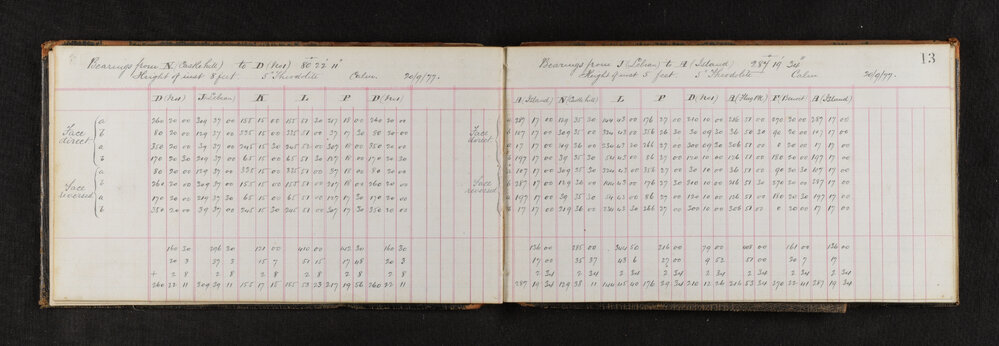 Bearings from N (Castle hill) to D (No1) 80° 22' 11"
Height of inst 8 feet. 5" Theodolite Calm. 20/9/77.
D (No1) J (Lilian) K L P D (No1)
Face direct
a 260 20 00 209 37 00 155 15 00 155 51 30 217 18 00 260 20 00
b 80 20 00 29 37 00 335 15 00 335 51 00 37 17 30 80 20 00
a 350 20 00 39 37 00 245 15 30 245 51 00 307 18 00 350 20 00
b 170 20 30 219 37 00 65 15 00 65 51 30 127 18 00 170 20 30
Face reversed
a 80 20 00 129 37 00 335 15 00 335 51 00 37 18 00 80 20 00
b 260 20 00 209 37 00 155 15 00 155 51 00 217 18 00 260 20 00
a 170 20 00 219 37 30 65 15 00 65 51 00 127 17 30 170 20 00
b 350 20 00 39 37 00 245 15 30 245 51 00 307 17 30 350 20 00
160 30 296 30 121 00 410 00 142 30 160 30
20 3 37 3 15 7 51 15 17 48 20 3
+ 2 8 2 8 2 8 2 8 2 8 2 8
260 22 11 209 39 11 155 17 15 155 53 23 217 19 56 260 22 11
13
Bearings from J (Lilian) to A (Island) 287° 19' 34"
Height of inst 5 feet. 5" Theodolite Calm 20/9/77.
A (Island) N (Castle hill) L P D (No1) A (Island)
Face direct
a 287 17 00 129 35 30 144 43 00 176 27 00 210 10 00 216 51 00 270 20 00 287 17 00
b 107 17 00 309 35 30 324 43 00 356 26 30 30 09 30 36 50 30 90 20 00 107 17 00
a 17 17 00 219 36 00 234 43 30 266 27 00 300 09 30 306 51 00 0 20 00 17 17 00
b 197 17 00 39 35 30 54 43 00 86 27 00 120 10 00 126 51 00 180 20 00 197 17 00
Face reversed
a 107 17 00 309 35 30 324 43 00 356 27 00 30 10 00 36 51 00 90 20 30 107 17 00
b 287 17 00 129 36 00 144 43 00 176 27 30 210 10 00 216 51 30 270 20 00 287 17 00
a 197 17 00 39 35 30 54 43 00 86 27 00 120 10 00 126 51 00 180 20 30 197 17 00
b 17 17 00 219 36 00 234 43 30 266 27 00 300 10 00 306 51 00 0 20 00 17 17 00
136 00 285 00 344 50 216 00 79 00 408 00 161 00 136 00
17 00 35 37 43 6 27 00 9 52 51 00 20 7 17
2 34 2 34 2 34 2 34 2 34 2 34 2 34 2 34
287 19 34 129 38 11 144 45 40 176 29 34 210 12 26 216 53 34 270 22 41 287 19 34